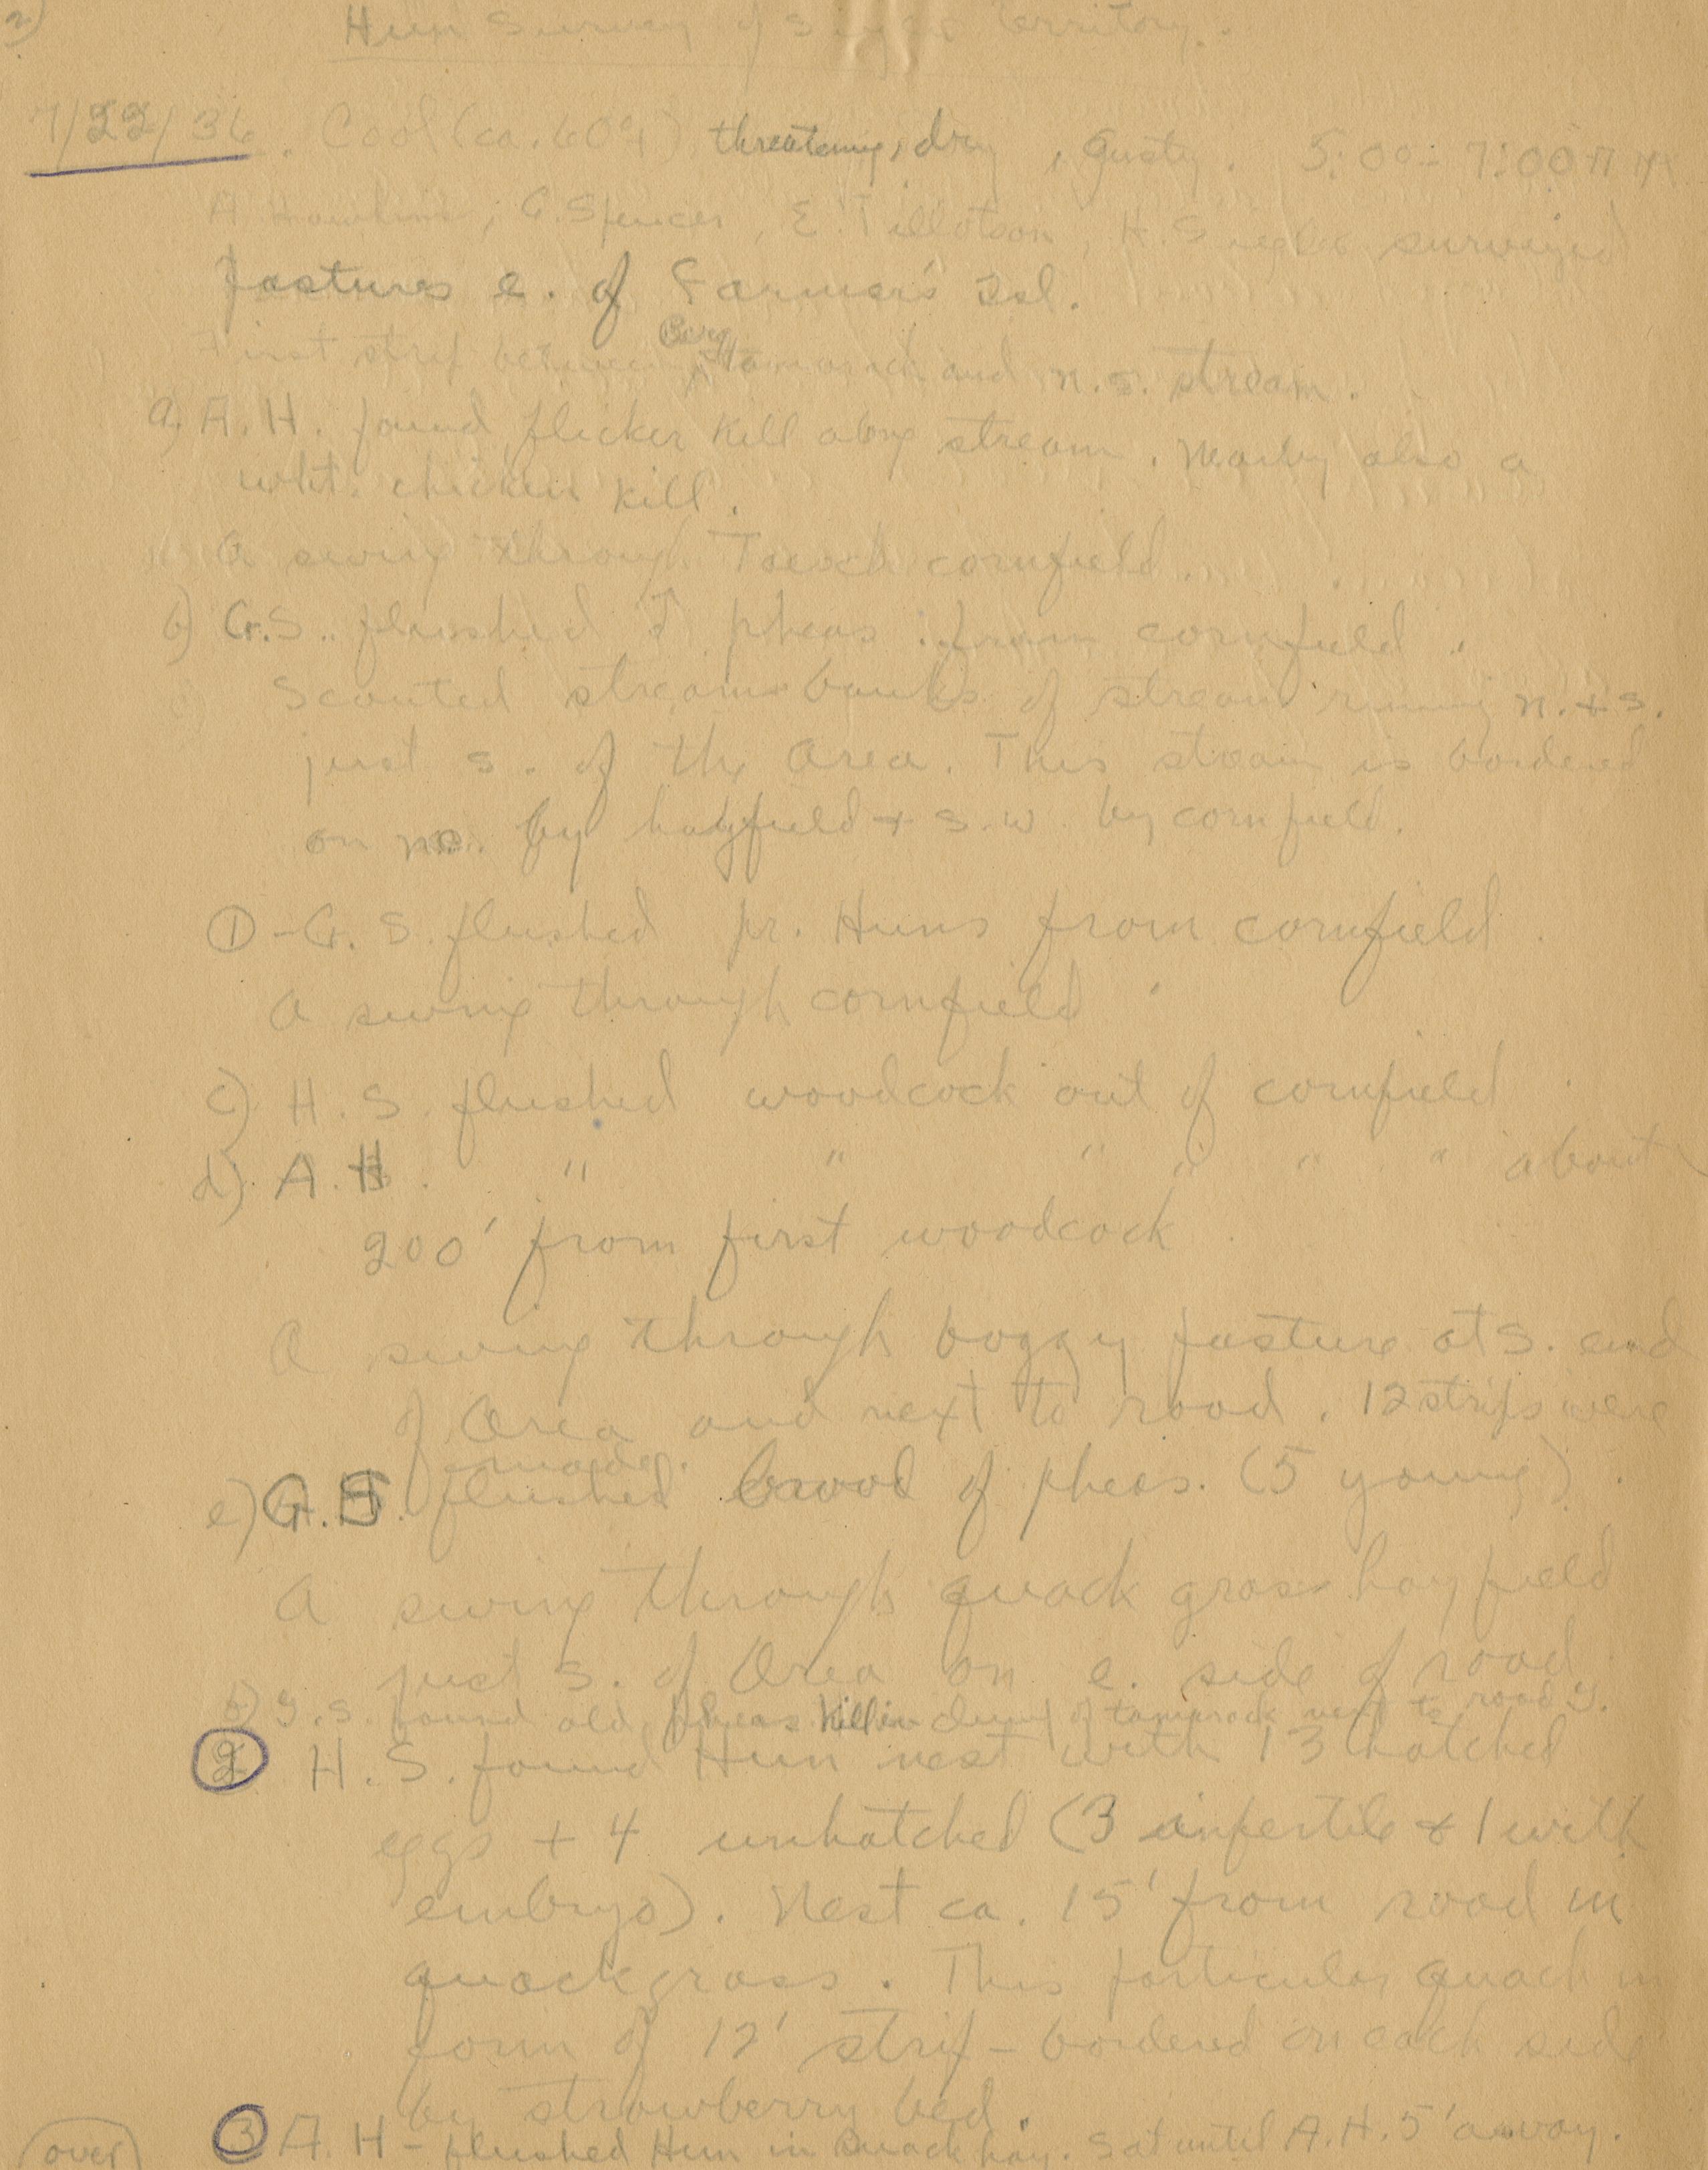 2)
Hun Survey of Territory.
7/22/36. Cool (ca. 60°) threatening, dry, gusty. 5:00 - 7:00 P.M.
A. Hawkins, G. Spencer, E. Tillotson, H. surveyed
pastures e. of Farmer's Isl.
First strip between Berg tamarack and n.s. stream.
a) A.H. found flicker kill along stream. Nearby also a
wht. chicken kill.
A swing through cornfield.
b) G.S. flushed ♂ pheas. from cornfield.
c) Scouted stream banks of stream running n. + s.
just s. of the Area. This stream is bordered
on ne. by hayfield + s.w. by cornfield.
① - G.S. flushed pr. Huns from cornfield.
A swing through cornfield
c) H.S. flushed woodcock out of cornfield
d) A.H. " " " " " " about
200' from first woodcock
A swing through boggy pasture at s. end
of Area and next to road. 12 strips were
made.
e) G.S. flushed brood of pheas. (5 young).
A swing through quack grass hayfield
just s. of Area on e. side of road
G.S. found old pheas kill in clump of tamarack next to road
② H.S. found Hun nest with 13 hatched
eggs + 4 unhatched (3 infertile + 1 with
embryo). Nest ca. 15' from road in
quackgrass. This particular quack in
form of 12' strip - bordered on each side
by strawberry bed.
③ A.H - flushed Hun in Quack hay. Sat until A.H. 5' away.
(over)